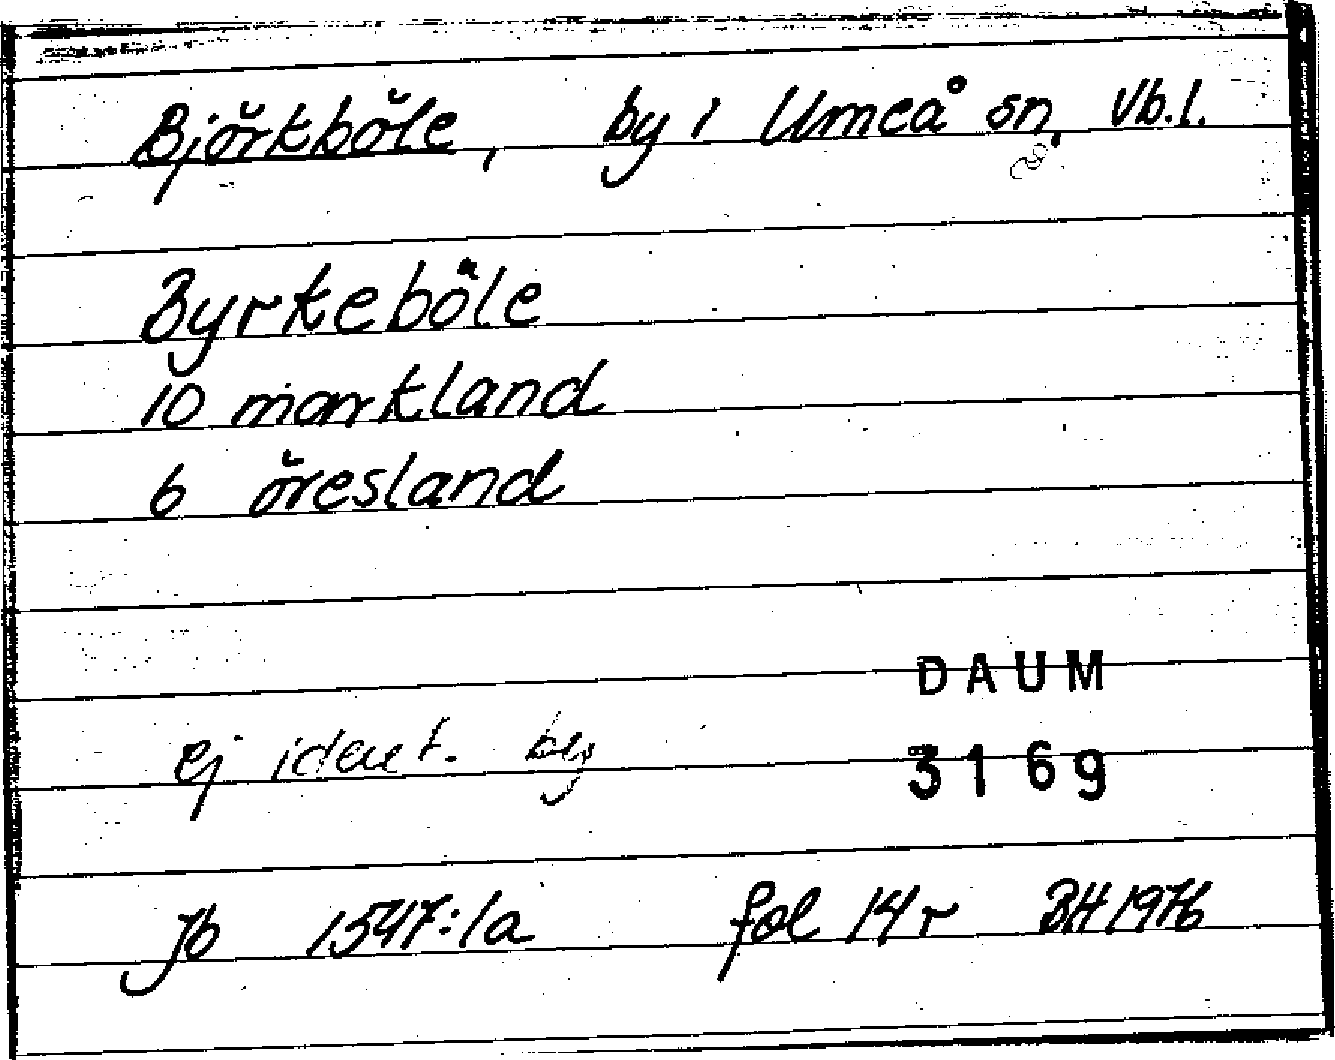 Björkböle, by i Umeå sn, Vb.l.
Byrkeböle
10 markland
6 öresland
DAUM
ej ident. by
3169
Jb 1547:1a fol 14r BH 1976